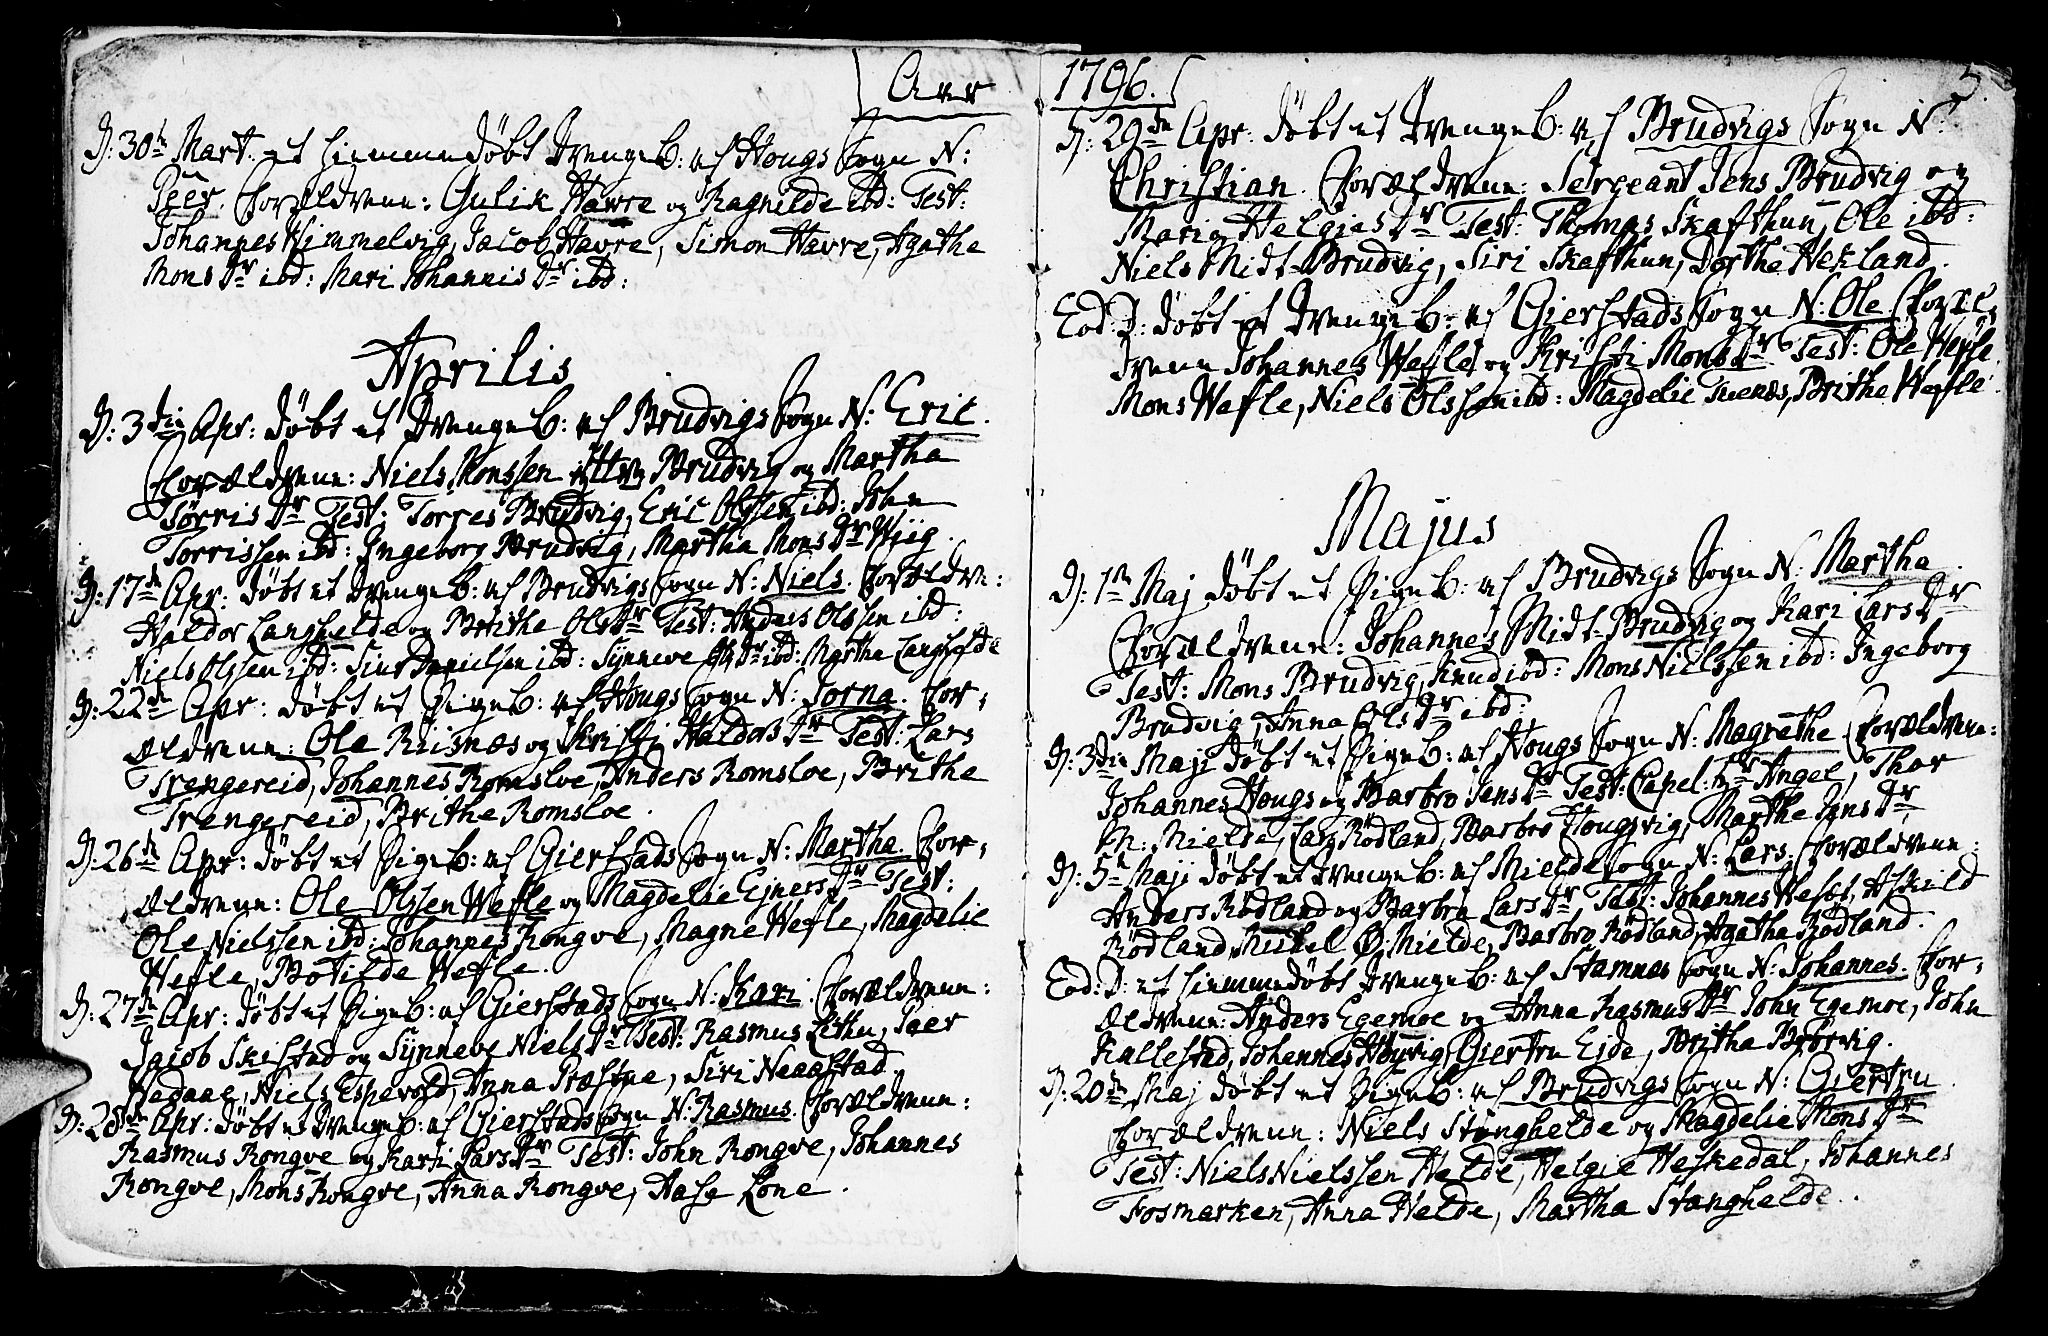 Aar
D: 30te Mart. et hiemmedöbt Drengeb: af Hougs Sogn N:
Peer. Forældrene: Gulik Havre og Ragnilde ibd: Test:
Johannes Himmelvig, Jacob Havre, Simon Havre, Agathe
Mons Dr ibd: Mari Johannis Dr ibd:
Aprilis
D: 3die Apr: döbt et Drengeb: af Brudvigs Sogn N: Eric.
Forældrene: Niels Monssen Brudvig og Martha
Torris Dr Test: Torres Brudvig, Eric Olssen ibd: John
Torrissen ibd: Ingeborg Brudvig, Martha Mons Dr Wiig.
D: 17de Apr: döbt et Drengeb: af Brudvigs Sogn N: Niels. Forældre:
Haldor Langhelde og Brithe Ols Dr Test: Anders Olssen ibd:
Niels Olssen ibd: Siur Danielsen ibd: Synneve Dr ibd: Martha Langhelde
D: 22de Apr: döbt et Pigeb: af Hougs Sogn N: Jorna. For-
ældrene: Ole Riisnæs og Kristi Haldors Dr Test: Lars
Trengereid, Johannes Romsloe, Anders Romsloe, Brithe
Trengereid, Brithe Romsloe.
D: 26de Apr: döbt et Pigeb: af Gierstads Sogn N: Martha. For-
ældrene: Ole Olssen Wefle og Magdelie Ejners Dr Test:
Ole Nielssen ibd: Johannes Rongve, Magne Wefle, Magdelie
Wefle, Botilde Wefle.
D: 27de Apr: döbt et Pigeb: af Gierstads Sogn N: Kari. Forældrene:
Jacob Skistad og Synneve Niels Dr Test: Rasmus Lithu, Peer
Hadaae, Niels Espevold, Anna Præstue, Siri Neaastad.
D: 28de Apr: döbt et Drengeb: af Gierstads Sogn N: Rasmus. Forældrene:
Rasmus Rongve og Kari Lars Dr Test: John Rongve, Johannes
Rongve, Mons Rongve, Anna Rongve, Aase Lone.
1796.
5.
D: 29de Apr: döbt et Drengeb: af Brudvigs Sogn N:
Christian. Forældrene: Sergeant Jens Brudvig og
Maria Helgies Dr Test: Thomas Skafthun, Ole ibd:
Niels Midt-Brudvig, Siri Skafthun, Dorthe Hekland.
Eod: D: döbt et Drengeb: af Gierstads Sogn N: Ole. Foræl-
drene Johannes Wefle og Kristi Mons Dr Test: Ole Wefle
Mons Wefle, Niels Olssen ibd: Magdelie Tuenæs, Brithe Wefle.
Majus
D: 1te Maj döbt et Pigeb: af Brudvigs Sogn N: Martha.
Forældrene: Johannes Midt-Brudvig og Kari Lars Dr
Test: Mons Brudvig, Knud ibd: Mons Nielssen ibd: Ingeborg
Brudvig, Anna Ols Dr ibd:
D: 3die Maji döbt et Pigeb: af Hougs Sogn N: Magrethe. Forældrene:
Johannes Hougs og Barbro Jens Dr Test: Capel: Hr Angel, Thor
M: Mielde, Lars Rödland, Barbro Hougsvig, Marthe Jens Dr
D: 5te Maji döbt et Drengeb: af Mielde Sogn N: Lars. Forældrene:
Anders Rödland og Barbra Lars Dr Test: Johannes Askild
Rödland, Mickel Ø. Mielde, Barbro Rödland, Agatha Rödland.
Eod: D: et hiemmedöbt Drengeb: af Stamnes Sogn N: Johannes. For-
ældrene: Anders Egemoe og Anna Rasmus Dr John Egemoe, John
Kallestad, Johannes Høyvig, Giertru Eide, Britha Brørvig.
D: 20de Maj döbt et Pigeb: af Brudvigs Sogn N: Giertru.
Forældrene: Niels Stanghelde og Magdelie Mons Dr
Test: Niels Nielssen Helde, Helgie Heskedal, Johannes
Fosmarken, Anna Helde, Martha Stanghelde.